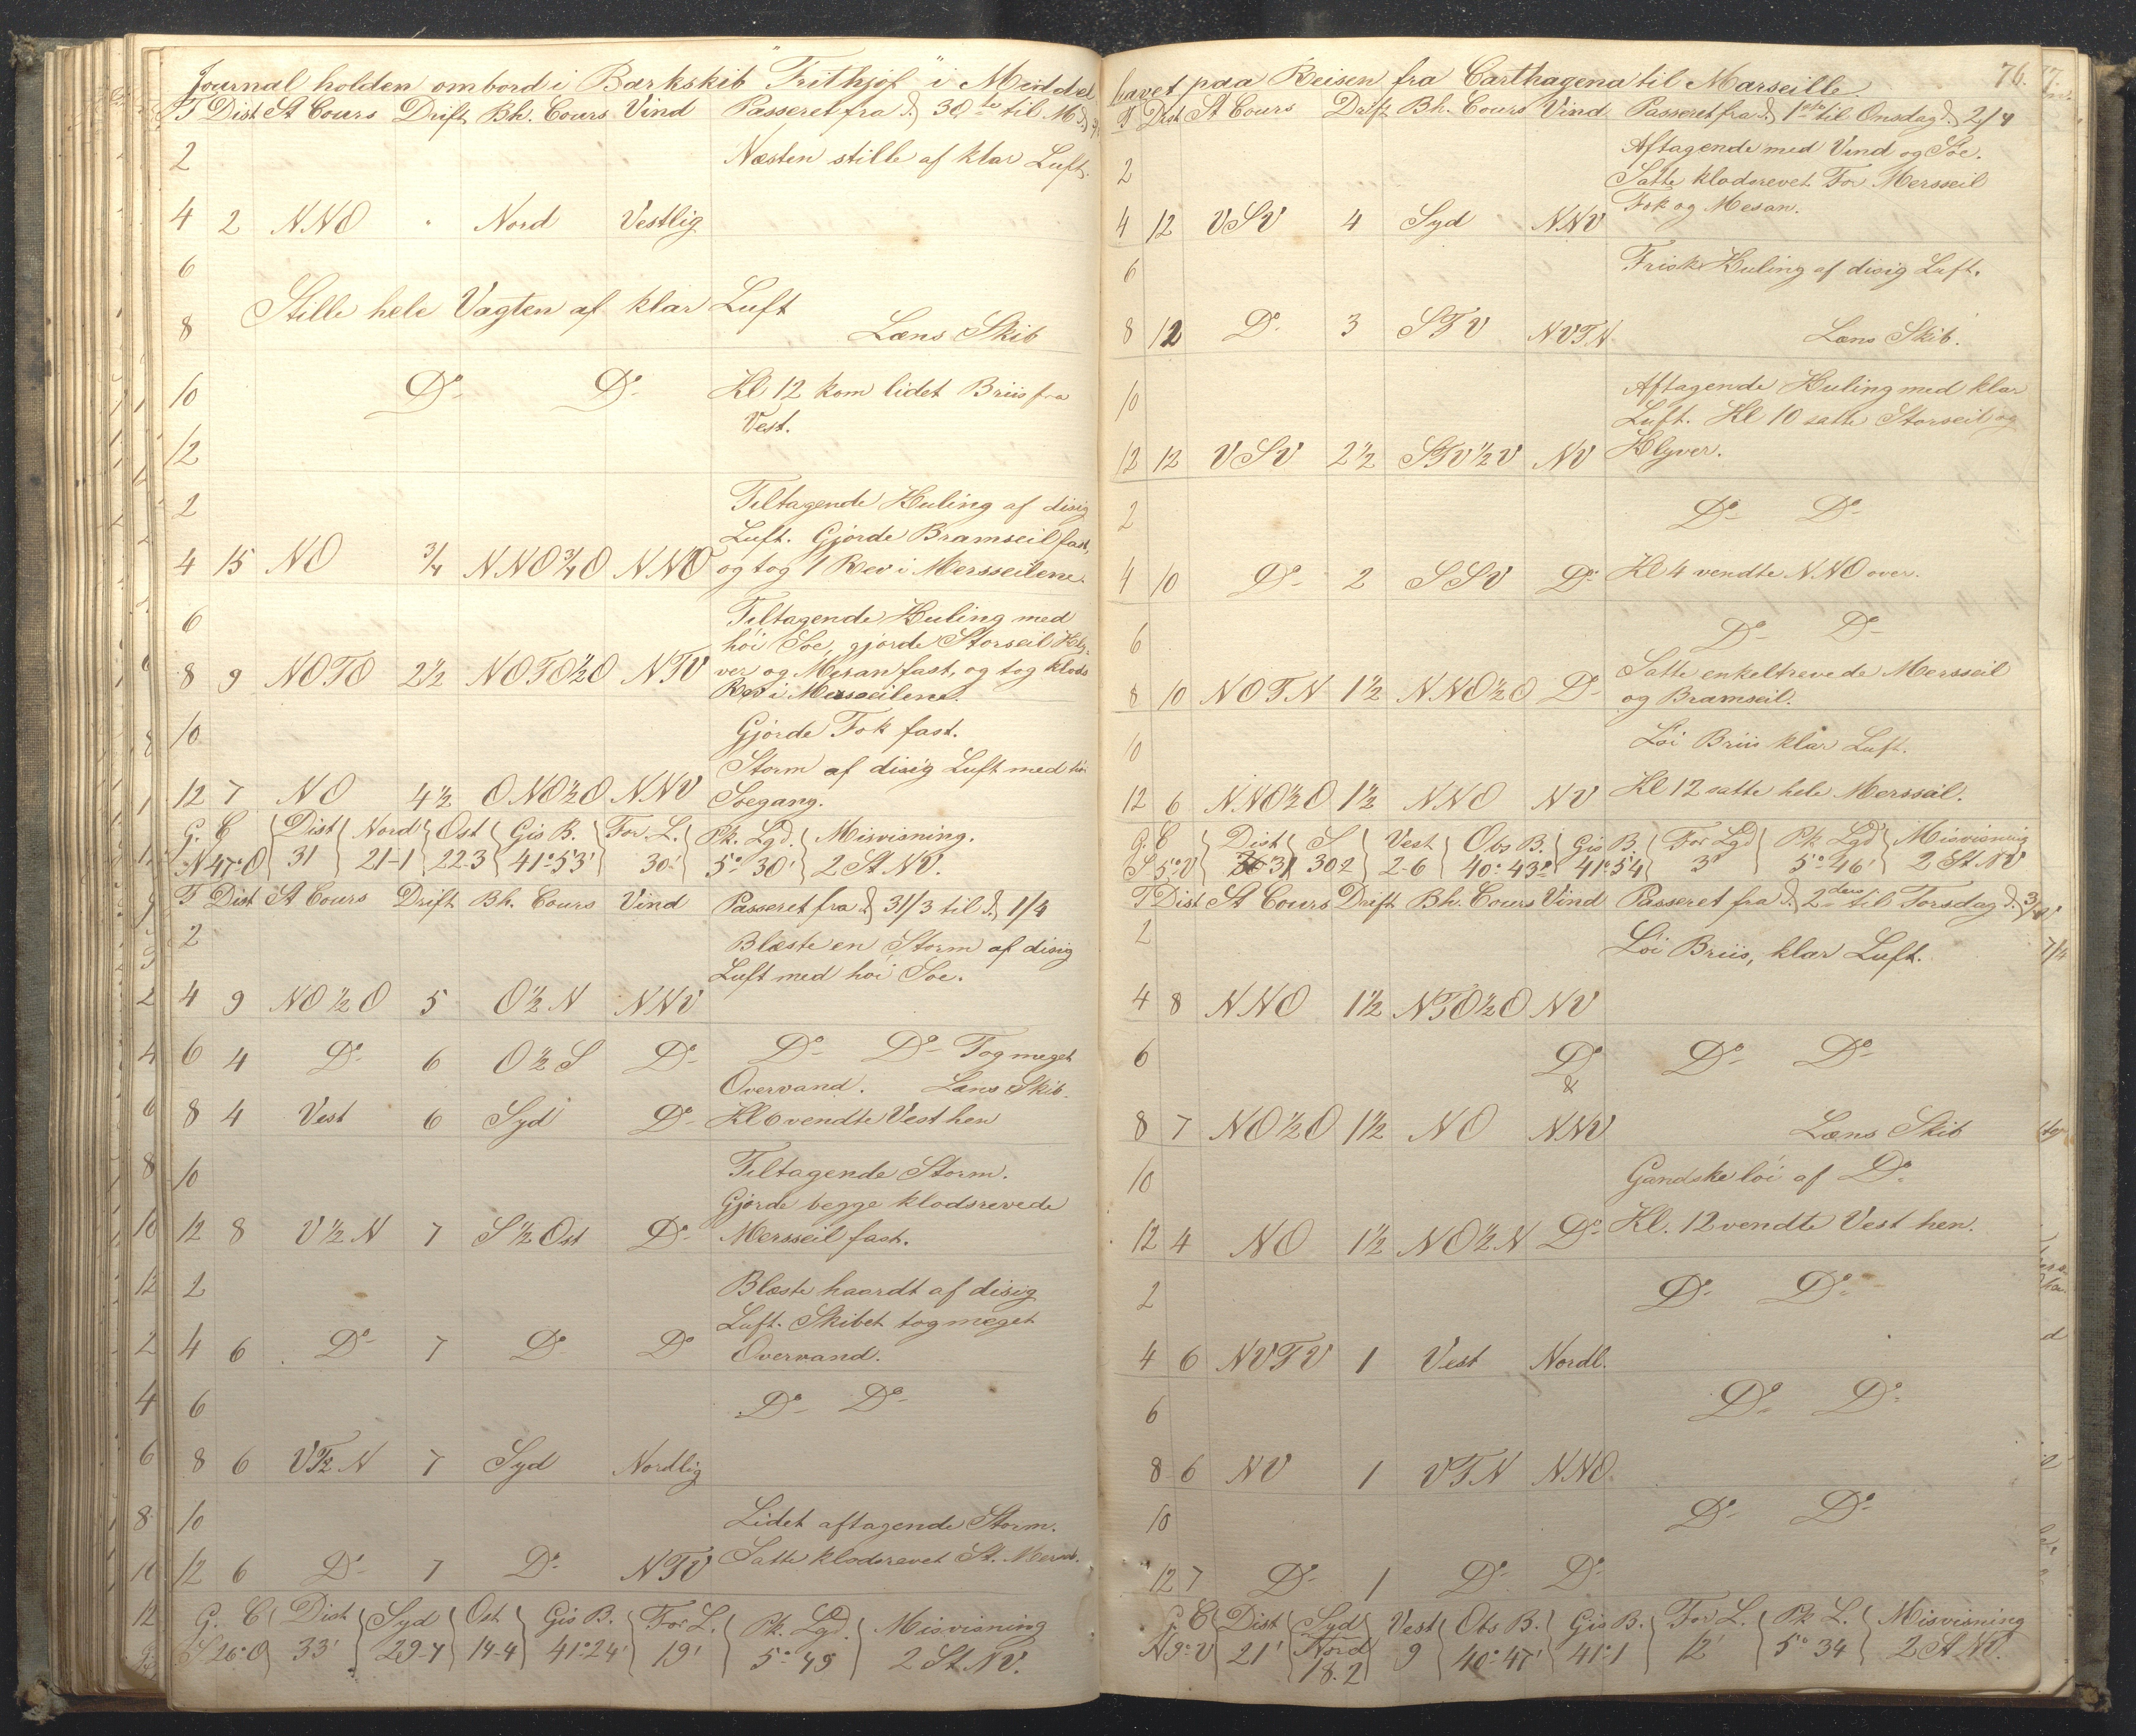 Journal holden ombord i Barkskib "Frithjof" i Middel
T Dist St Cours Drift Bh. Cours Vind Passeret fra d. 30te til M
2 Næsten stille af klar Luft.
4 2 NNO " Nord Vestlig
6
Stille hele Vagten af klar Luft
8 Læns Skib
10 Do Do Kl 12 kom lidet Briis fra
Vest.
12
2 Tiltagende Kuling af disig
Luft. Gjorde Bramseil fast,
4 15 NO 3/4 NNO3/4O NNO og tog 1 Rev i Mersseilene.
6 Tiltagende Kuling med
höi Söe, gjorde Storseil Kly-
8 9 NOTO 2½ NOTO½O NTV ver og Mesan fast, og tog klods
Rev i Mersseilene.
10 Gjorde Fok fast.
Storm af disig Luft med höi
12 7 NO 4½ ONO½O NNV Söegang.
G. C Dist Nord Ost Gis B. For L. Pk. Lgd. Misvisning.
N47°O 31 21-1 22.3 41°53' 30' 5°30' 2 St. NV.
T Dist St Cours Drift Bh. Cours Vind Passeret fra d. 31/3 til d. 1/4
2 Blæste en Storm af disig
Luft med höi Söe.
4 9 NO½O 5 O½N NNV
6 4 Do 6 O½S Do Do Do Tog meget
Overvand. Læns Skib.
8 4 Vest 6 Syd Do Kl 6 vendte Vest hen
10 Tiltagende Storm.
Gjorde begge klodsrevede
12 8 V½N 7 S½Ost Do Mersseil fast.
2 Blæste haardt af disig
Luft. Skibet tog meget
4 6 Do 7 Do Do Overvand.
6 Do Do
8 6 VT½N 7 Syd Nordlig
10 Lidet aftagende Storm.
12 6 Do 7 Do NTV Satte klodsrevet St. Mers.
G. C Dist Syd Ost Gis B. For L. Pk. Lgd. Misvisning
S26°O 33' 29-7 14-4 41°24' 19' 5°49 2 St. NV.
havet paa Reisen fra Carthagena til Marseille. 76.
T Dist St Cours Drift Bh. Cours Vind Passeret fra d. 1ste til Onsdag d. 2/4
2 Aftagende med Vind og Söe.
Satte klodsrevet For Mersseil
4 12 VSV 4 Syd NNV Fok og Mesan.
6 Frisk Kuling af disig Luft.
8 12 Do 3 STV NVTN Læns Skib.
10 Aftagende Kuling med klar
Luft. Kl 10 satte Storseil og
12 12 VSV 2½ STV½V NV Klyver.
2 Do Do
4 10 Do 2 SSV Do Kl 4 vendte N.NO over.
6 Do Do
Satte enkeltrevede Mersseil
8 10 NOTN 1½ NNO½O Do og Bramseil.
10 Löi Briis klar Luft.
12 6 N.NO½O 1½ NNO NV Kl 12 satte hele Mersseil.
G. C Dist S Vest Obs B. Gis B. For Lgd Pk Lgd Misvisning
S 5°V 31 30 2 2-6 40°43' 41°54 3' 5°46' 2 St. NV
T Dist St Cours Drift Bh. Cours Vind Passeret fra d. 2den til Torsdag d. 3/4
2 Löi Briis, klar Luft.
4 8 NNO 1½ NTO½O NV
6 Do Do Do
&
8 7 NO½O 1½ NO NNV Læns Skib
10 Gandske löi af Do
12 4 NO 1½ NO½N Do Kl. 12 vendte Vest hen.
2 Do Do
4 6 NVTV 1 Vest Nordl.
6 Do Do
8 6 NV 1 VTN NNO.
10 Do Do
12 7 Do 1 Do Do
G. C Dist Syd Vest Obs B. Gis B. For L. Pk L. Misvisning
N9°V 21' Nord 9 40°47' 41°1 12' 5°34 2 St. NV.
18.2